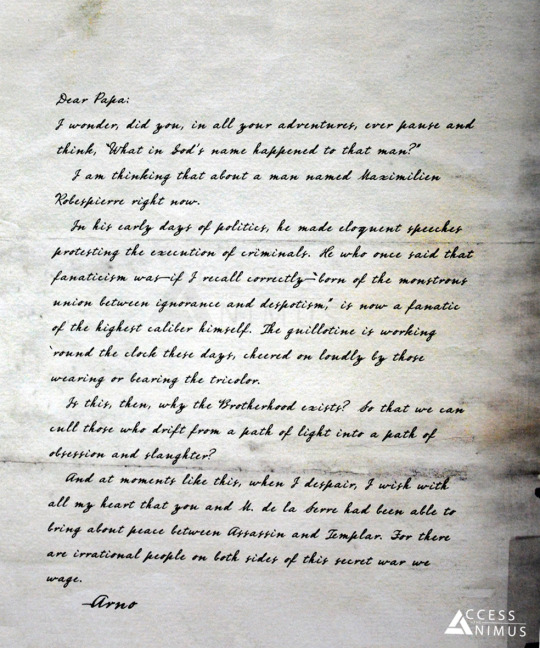 Dear Papa:
I wonder, did you, in all your adventures, ever pause and
think, "What in God's name happened to that man?"
I am thinking that about a man named Maximilien
Robespierre right now.
In his early days of politics, he made eloquent speeches
protesting the execution of criminals. He who once said that
fanaticism was—if I recall correctly—"born of the monstrous
union between ignorance and despotism," is now a fanatic
of the highest caliber himself. The guillotine is working
'round the clock these days, cheered on loudly by those
wearing or bearing the tricolor.
Is this, then, why the Brotherhood exists? So that we can
cull those who drift from a path of light into a path of
obsession and slaughter?
And at moments like this, when I despair, I wish with
all my heart that you and M. de la Serre had been able to
bring about peace between Assassin and Templar. For there
are irrational people on both sides of this secret war we
wage.
—Arno
ACCESS
ANIMUS